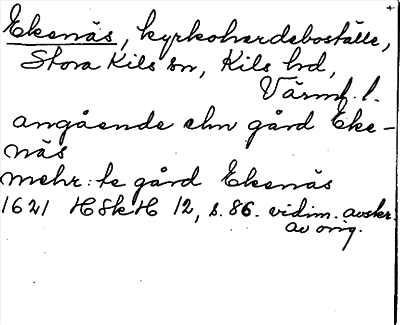 Ekenäs, kyrkoherdeboställe,
Stora Kils sn, Kils hd,
Värml. l.
angående ehn gård Eke-
näs
mehr: te gård Ekenäs
1621 HSkH 12, s. 86. vidim. avskr.
av orig.